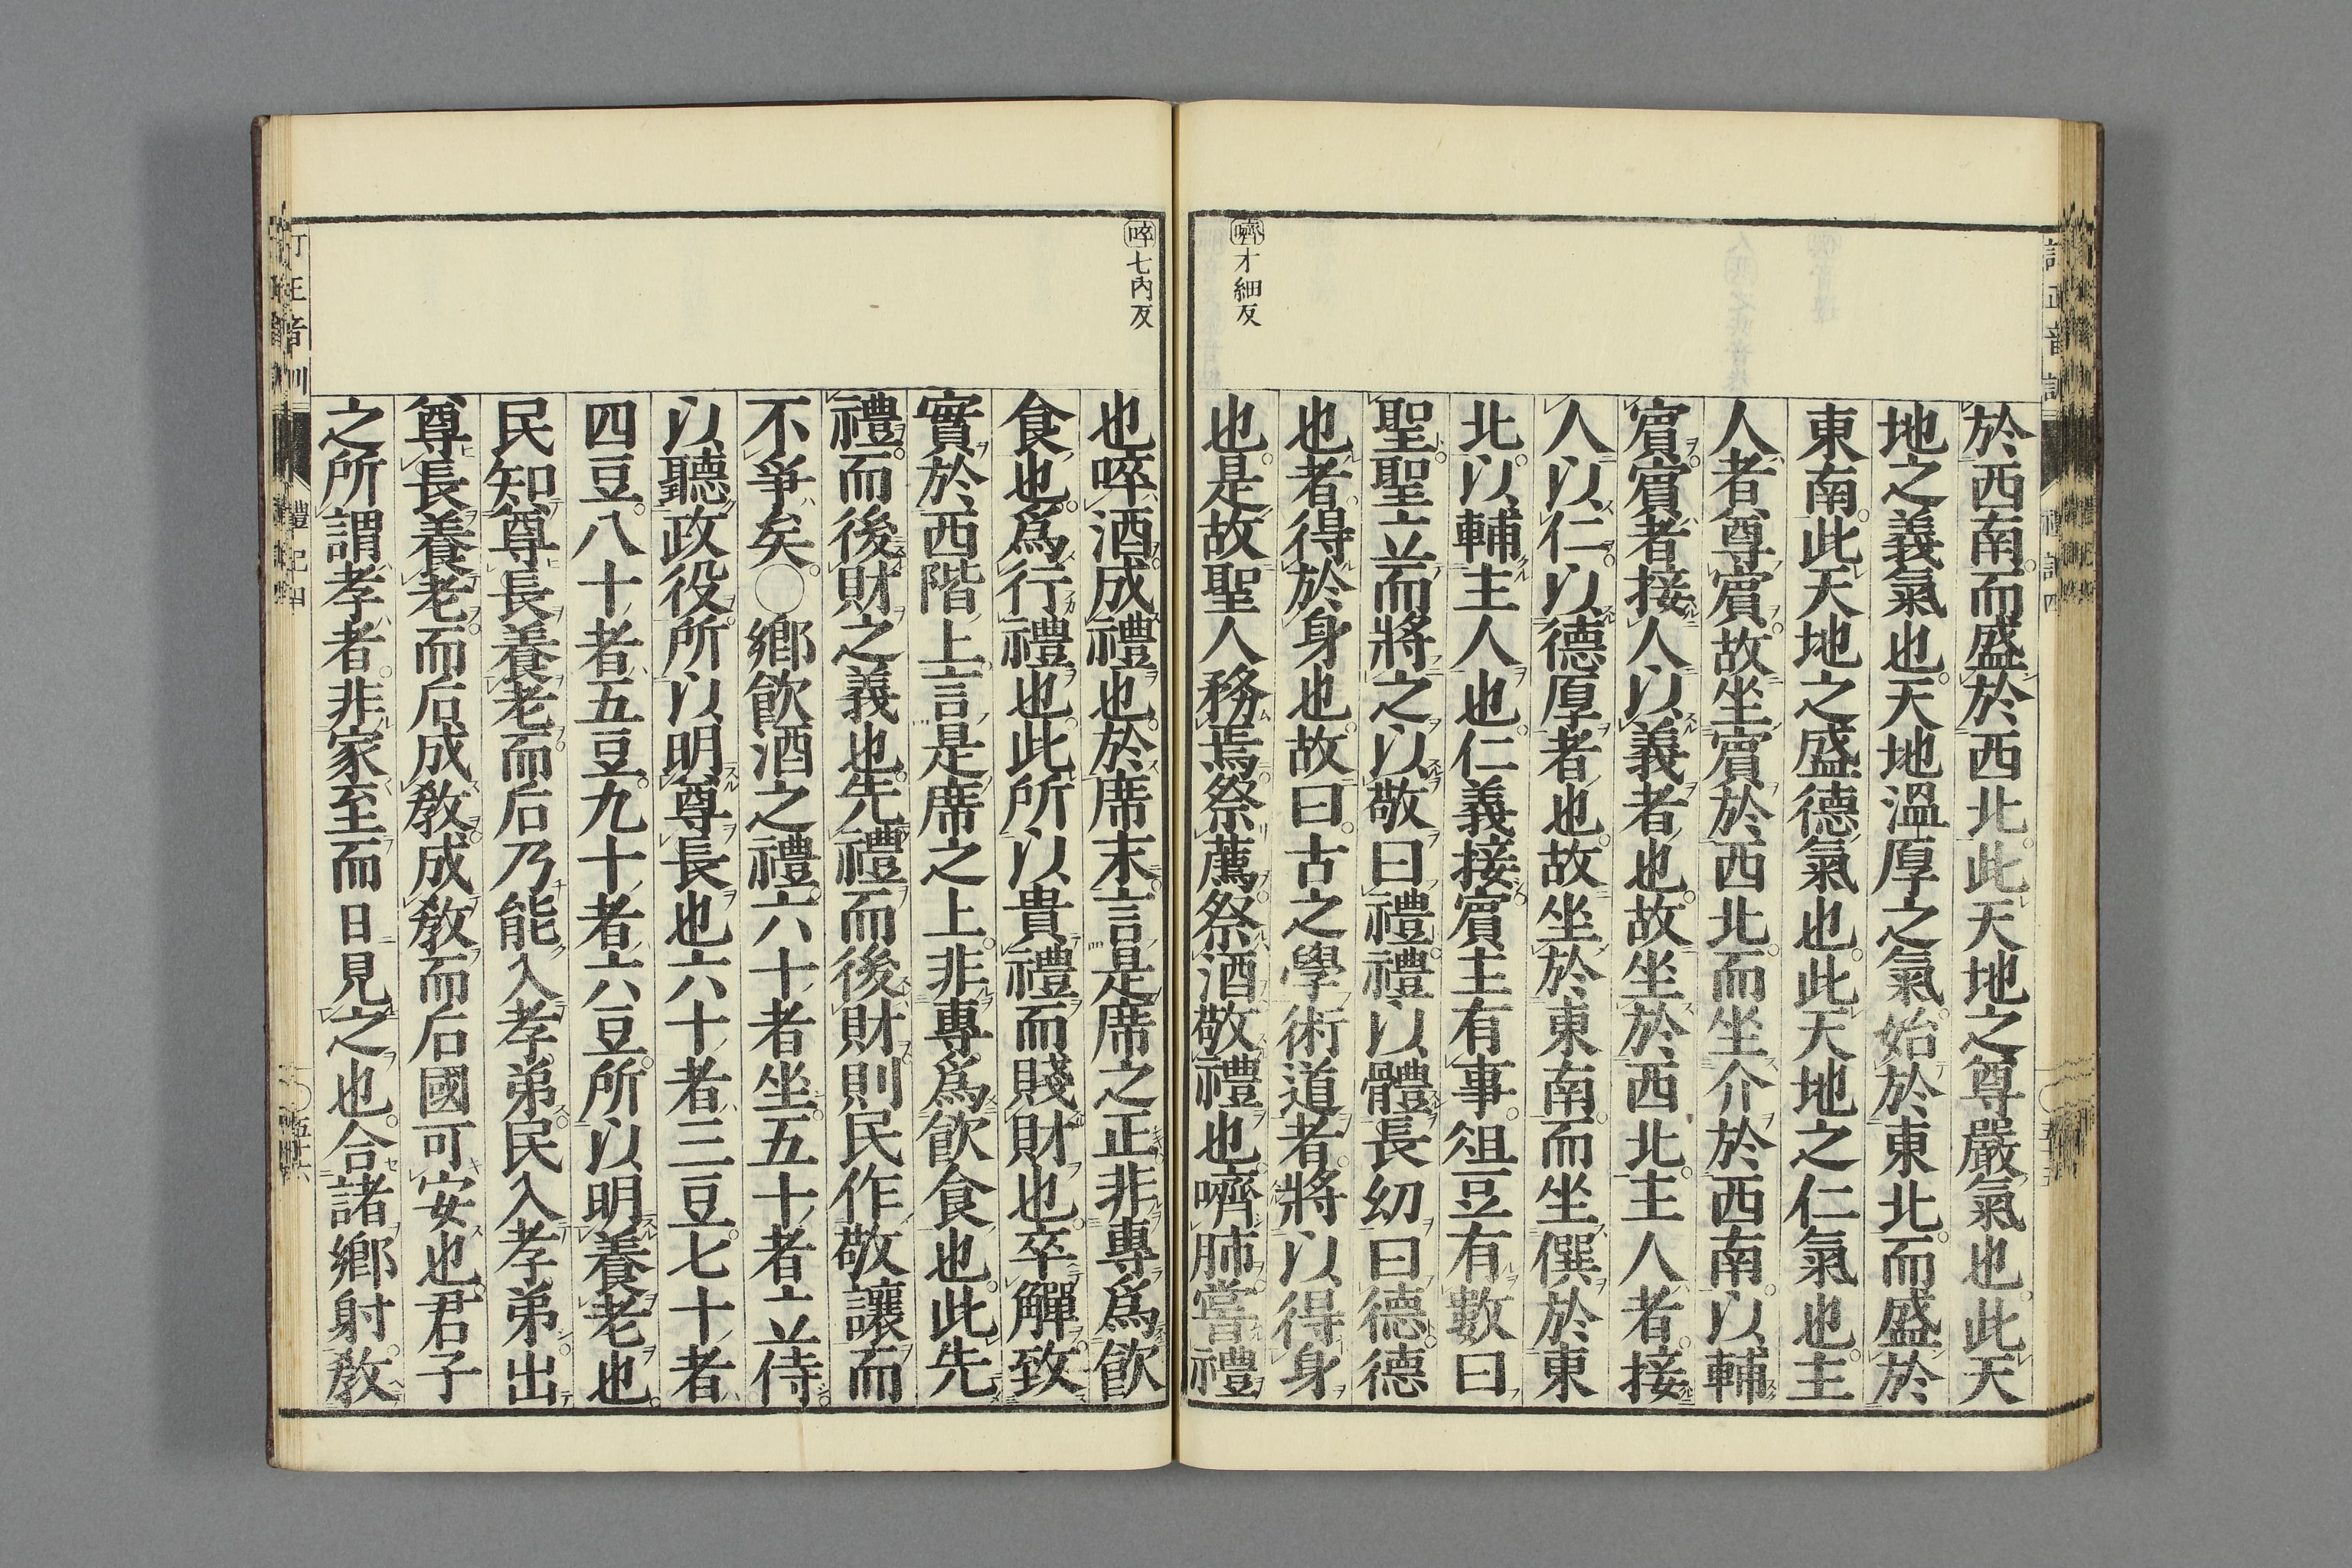 嚌才細反
於西南而盛於西北此天地之尊嚴氣也此天
地之義氣也天地溫厚之氣始於東北而盛於
東南此天地之盛德氣也此天地之仁氣也主
人者尊賓故坐賓於西北而坐介於西南以輔
賓賓者接人以義者也故坐於西北主人者接
人以仁以德厚者也故坐於東南而坐僎於東
北以輔主人也仁義接賓主有事俎豆有數曰
聖聖立而將之以敬曰禮禮以體長幼曰德德
也者得於身也故曰古之學術道者將以得身
也是故聖人務焉祭薦祭酒敬禮也嚌肺嘗禮
啐七內反
也啐酒成禮也於席末言是席之正非專爲飮
食也爲行禮也此所以貴禮而賤財也卒觶致
實於西階上言是席之上非專爲飮食也此先
禮而後財之義也先禮而後財則民作敬讓而
不爭矣○鄉飮酒之禮六十者坐五十者立侍
以聽政役所以明尊長也六十者三豆七十者
四豆八十者五豆九十者六豆所以明養老也
民知尊長養老而后乃能入孝弟民入孝弟出
尊長養老而后成敎成敎而后國可安也君子
之所謂孝者非家至而日見之也合諸鄉射敎